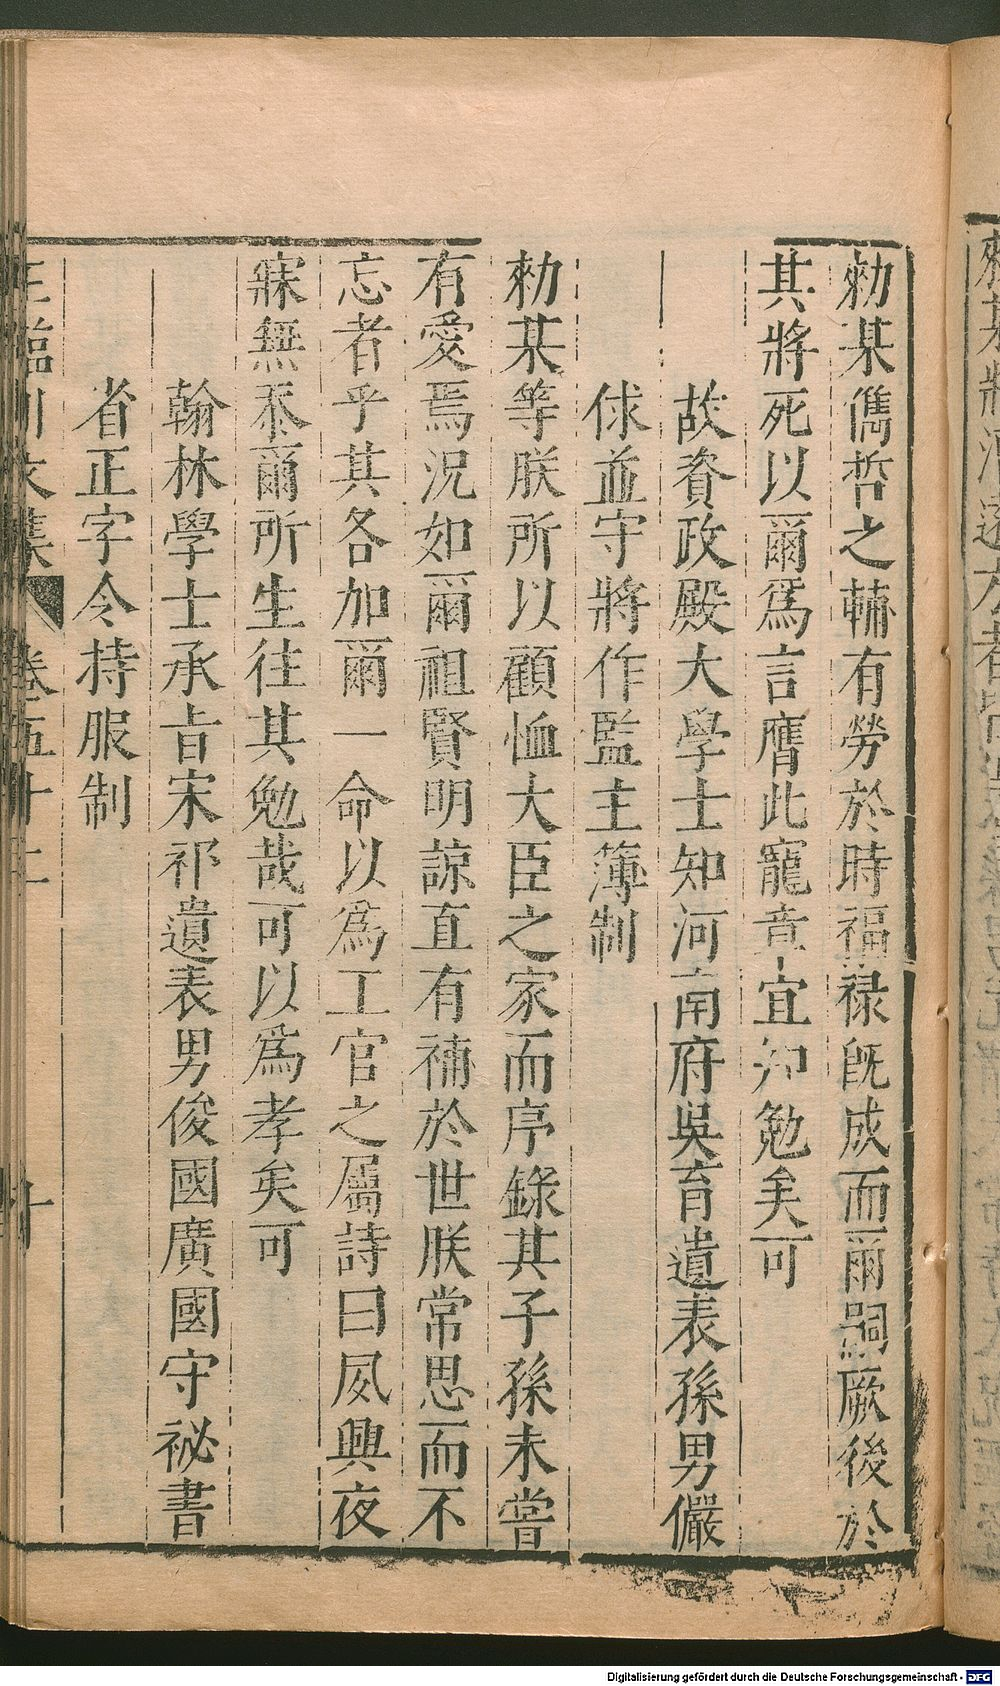 勑某儁哲之輔有勞於時福祿旣成而爾嗣厥後於
其將死以爾爲言膺此寵章宜知勉矣可
故資政殿大學士知河南府吳育遺表孫男儼
俅並守將作監主簿制
勑某等朕所以顧恤大臣之家而序錄其子孫未嘗
有愛焉況如爾祖賢明諒直有補於世朕常思而不
忘者乎其各加爾一命以爲工官之屬詩曰夙興夜
寐無忝爾所生往其勉哉可以爲孝矣可
翰林學士承旨宋祁遺表男俊國廣國守祕書
省正字令持服制
王臨川文集 卷五十二 十
Digitalisierung gefördert durch die Deutsche Forschungsgemeinschaft - DFG